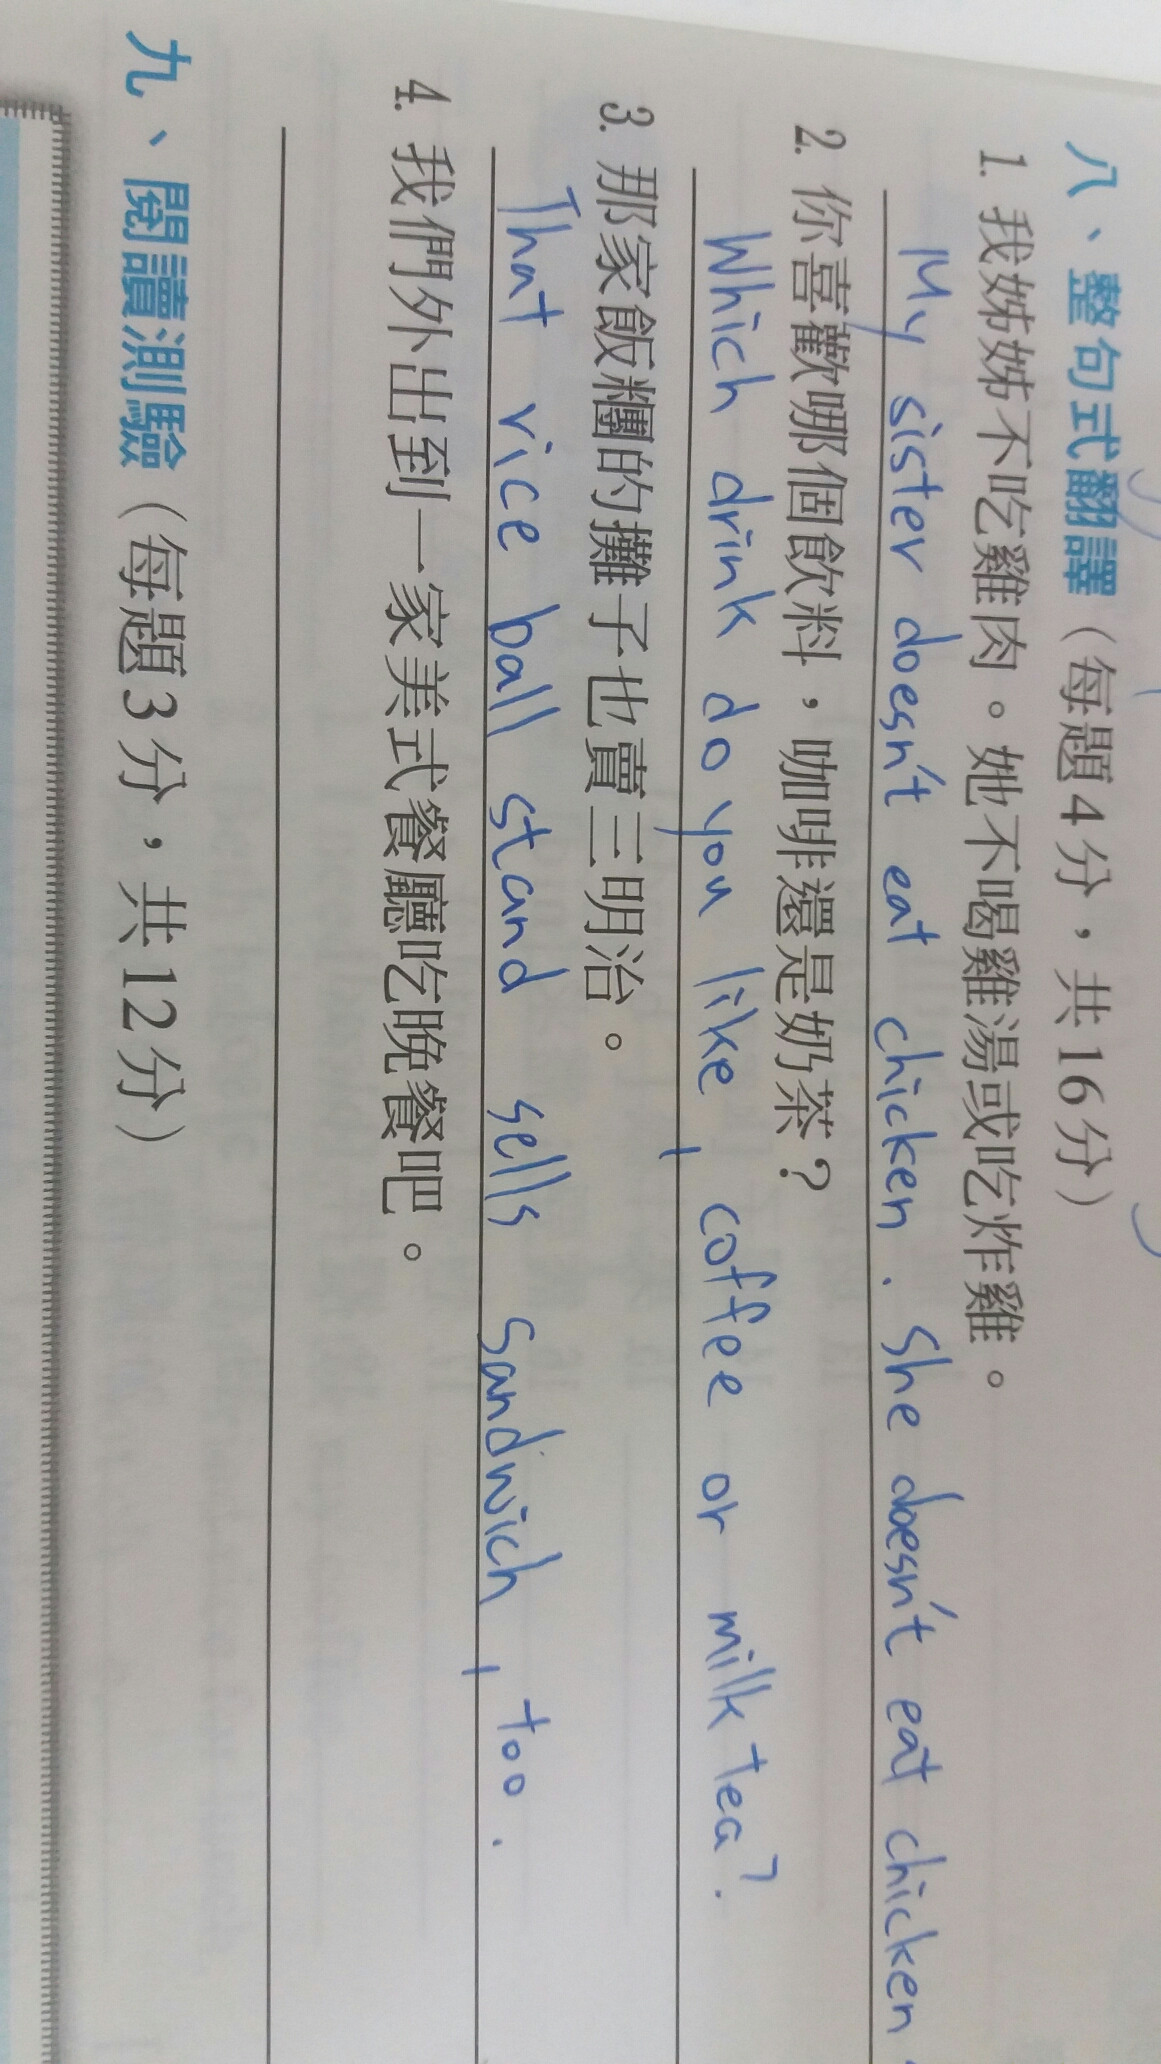 八、整句式翻譯（每題4分，共16分）
1. 我姊姊不吃雞肉。她不喝雞湯或吃炸雞。
My sister doesn't eat chicken. She doesn't eat chicken
2. 你喜歡哪個飲料，咖啡還是奶茶？
Which drink do you like, coffee or milk tea?
3. 那家飯糰的攤子也賣三明治。
That rice ball stand sells sandwich, too.
4. 我們外出到一家美式餐廳吃晚餐吧。
九、閱讀測驗（每題3分，共12分）